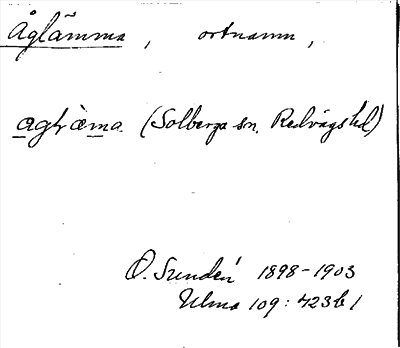 Åglämma, ortnamn,
(Solberga sn, Redvägs hd)
D. Sundén 1898-1903
Ulma 109:423b1